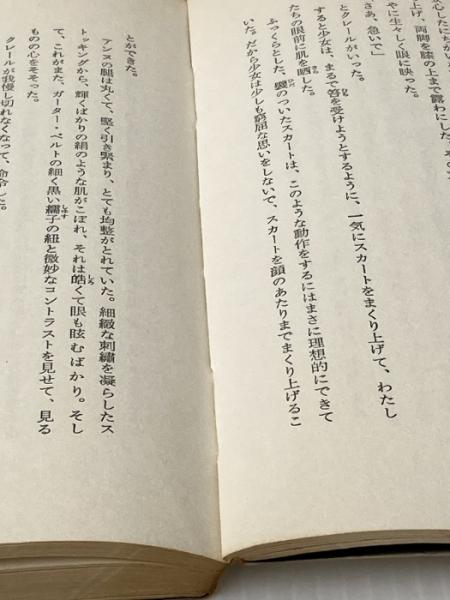 心したにちがい
上げ、両脚を膝の上まで露わにした。
やに生々しく眼に映った。
さあ、急いで」
とクレールがいった。
すると少女は、まるで笞を受けようとするように、一気にスカートをまくり上げて、わたし
たちの眼前に肌を晒した。襞のついたスカートは、このような動作をするにはまさに理想的にできて
いた。だから少女は少しも窮屈な思いをしないで、スカートを顔のあたりまでまくり上げるこ
とができた。
アンヌの腿は丸くて、堅く引き緊まり、とても均整がとれていた。細緻な刺繡を凝らしたス
トッキングから、輝くばかりの絹のような肌がこぼれ、それは皓くて眼も眩むばかり。そし
て、これがまた、ガーター・ベルトの細く黒い繻子の紐と微妙なコントラストを見せて、見る
ものの心をそそった。
クレールが我慢し切れなくなって、命令した。